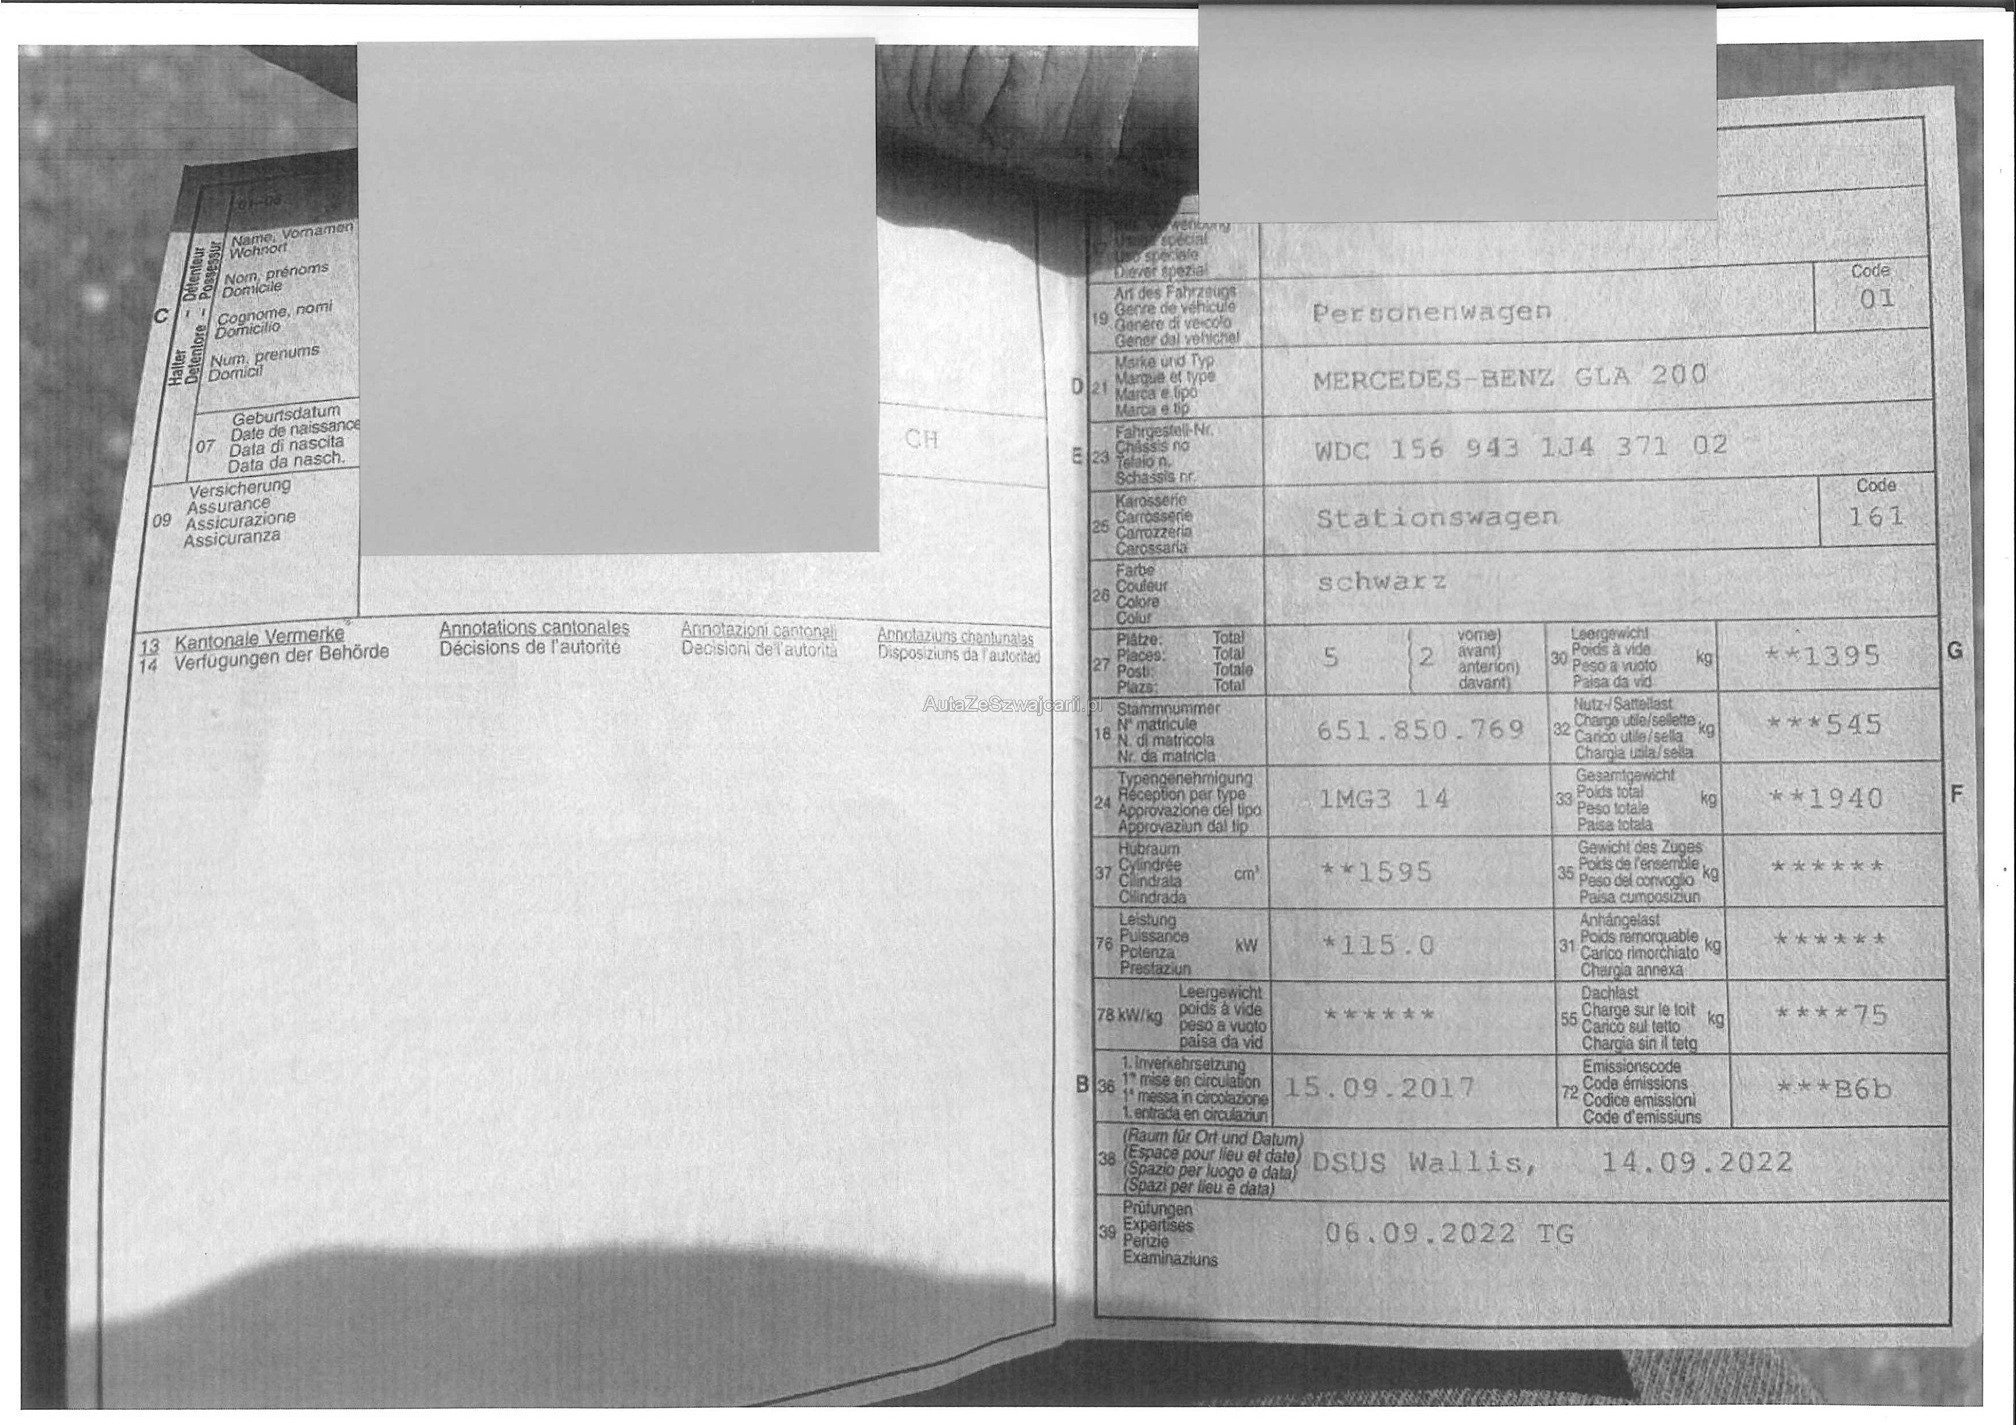 01-06
Name, Vornamen
Wohnort
Nom, prénoms
Domicile
Cognome, nomi
Domicilio
Num, prenums
Domicil
C
Halter - Détenteur
Detentore - Possessur
07
Geburtsdatum
Date de naissance
Data di nascita
Data da nasch.
CH
09
Versicherung
Assurance
Assicurazione
Assicuranza
13 Kantonale Vermerke
14 Verfügungen der Behörde
Annotations cantonales
Décisions de l'autorité
Annotazioni cantonali
Decisioni de l'autorità
Annotaziuns chantunalas
Disposiziuns da l'autoritad
AutaZeSzwajcarii.pl
Usage spécial
Uso speciale
Diever spezial
19
Art des Fahrzeugs
Genre de véhicule
Genere di veicolo
Gener dal vehichel
Personenwagen
Code
01
D 21
Marke und Typ
Marque et type
Marca e tipo
Marca e tip
MERCEDES-BENZ GLA 200
E 23
Fahrgestell-Nr.
Châssis no
Telaio n.
Schassis nr.
WDC 156 943 1J4 371 02
25
Karosserie
Carrosserie
Carrozzeria
Carossaria
Stationswagen
Code
161
26
Farbe
Couleur
Colore
Colur
schwarz
27
Plätze: Total
Places: Total
Posti: Totale
Plazs: Total
5 (2
vorne)
avant)
anteriori)
davant)
30
Leergewicht
Poids à vide
Peso a vuoto
Paisa da vid
kg
**1395
G
18
Stammnummer
N° matricule
N. di matricola
Nr. da matricla
651.850.769
32
Nutz-/Sattellast
Charge utile/sellette
Carico utile/sella
Chargia utila/sella
kg
***545
24
Typengenehmigung
Réception par type
Approvazione del tipo
Approvaziun dal tip
1MG3 14
33
Gesamtgewicht
Poids total
Peso totale
Paisa totala
kg
**1940
F
37
Hubraum
Cylindrée
Cilindrata
Cilindrada
cm³
**1595
35
Gewicht des Zuges
Poids de l'ensemble
Peso del convoglio
Paisa cumposiziun
kg
******
76
Leistung
Puissance
Potenza
Prestaziun
kW
*115.0
31
Anhängelast
Poids remorquable
Carico rimorchiato
Chargia annexa
kg
******
78 kW/kg
Leergewicht
poids à vide
peso a vuoto
paisa da vid
******
55
Dachlast
Charge sur le toit
Carico sul tetto
Chargia sin il tetg
kg
****75
B 36
1. Inverkehrsetzung
1re mise en circulation
1a messa in circolazione
1. entrada en circulaziun
15.09.2017
72
Emissionscode
Code émissions
Codice emissioni
Code d'emissiuns
***B6b
38
(Raum für Ort und Datum)
(Espace pour lieu et date)
(Spazio per luogo e data)
(Spazi per lieu e data)
DSUS Wallis, 14.09.2022
39
Prüfungen
Expertises
Perizie
Examinaziuns
06.09.2022 TG